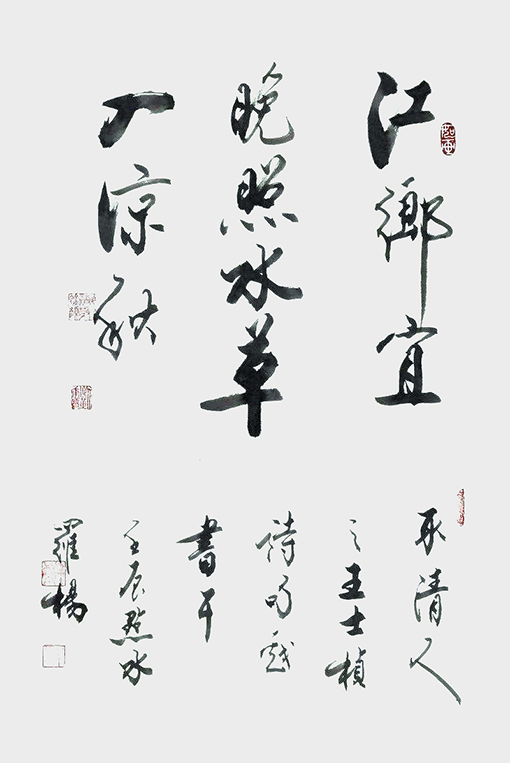 江鄉宜
晚照水草
入涼秋
清人
之王士禎
詩句戲
書于
壬辰
羅楊